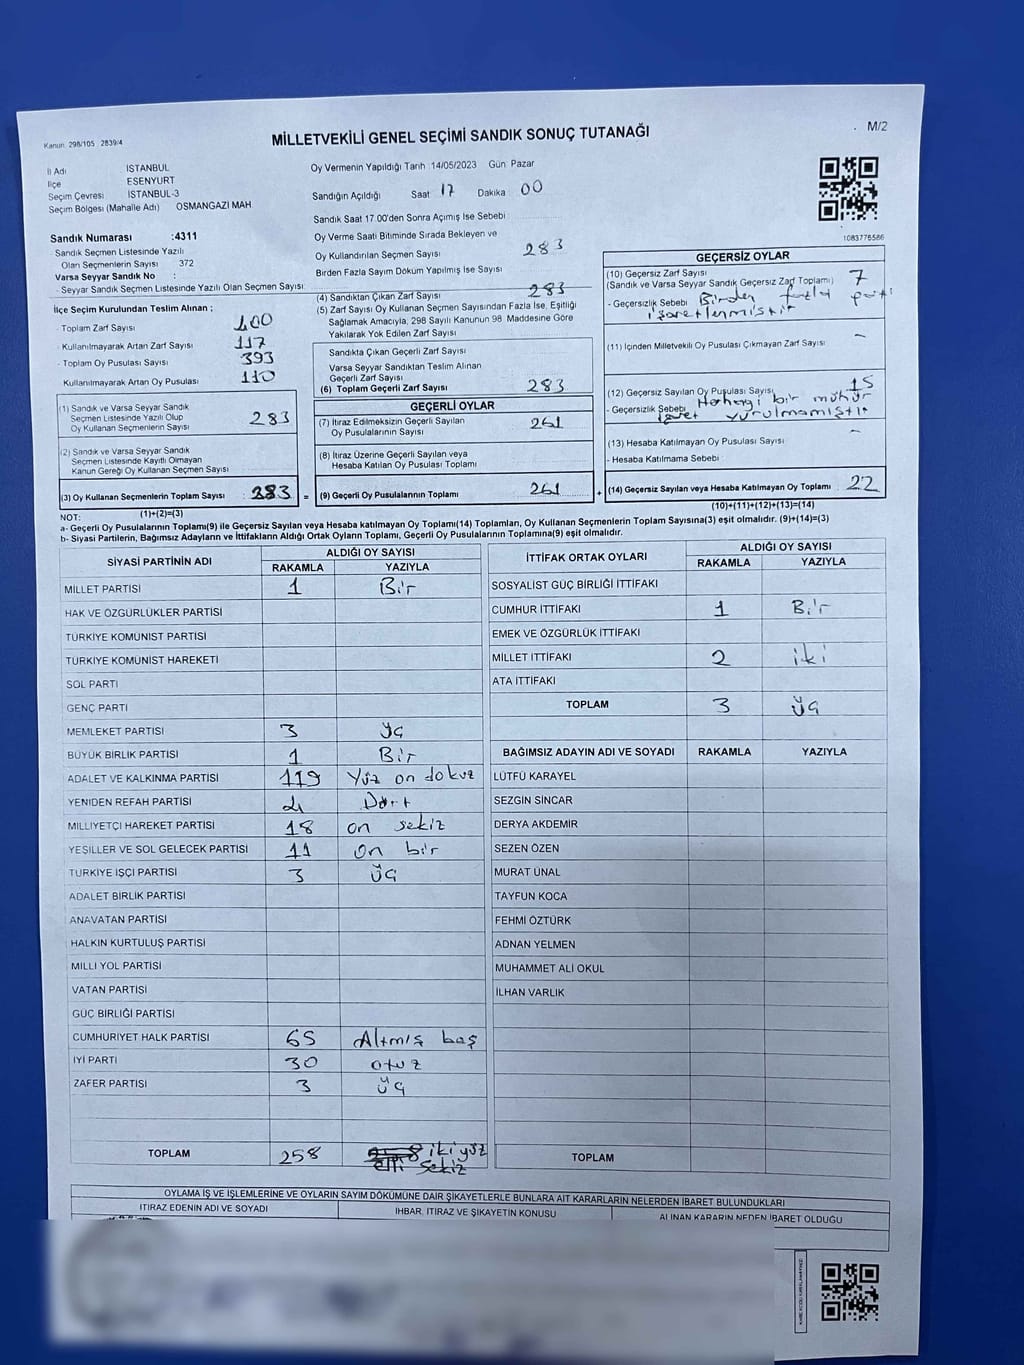 Kanun 298/105 2839/4
MİLLETVEKİLİ GENEL SEÇİMİ SANDIK SONUÇ TUTANAĞI
M/2
İl Adı İSTANBUL
İlçe ESENYURT
Seçim Çevresi İSTANBUL-3
Seçim Bölgesi (Mahalle Adı) OSMANGAZİ MAH
Oy Vermenin Yapıldığı Tarih 14/05/2023 Gün Pazar
Sandığın Açıldığı Saat 17 Dakika 00
Sandık Saat 17.00'den Sonra Açımış İse Sebebi
Sandık Numarası :4311
Sandık Seçmen Listesinde Yazılı
Olan Seçmenlerin Sayısı 372
Varsa Seyyar Sandık No :
- Seyyar Sandık Seçmen Listesinde Yazılı Olan Seçmen Sayısı
Oy Verme Saati Bitiminde Sırada Bekleyen ve
Oy Kullandırılan Seçmen Sayısı 283
Birden Fazla Sayım Döküm Yapılmış İse Sayısı
1083776586
İlçe Seçim Kurulundan Teslim Alınan ;
- Toplam Zarf Sayısı 400
- Kullanılmayarak Artan Zarf Sayısı 117
- Toplam Oy Pusulası Sayısı 393
Kullanılmayarak Artan Oy Pusulası 110
(1) Sandık ve Varsa Seyyar Sandık
Seçmen Listesinde Yazılı Olup
Oy Kullanan Seçmenlerin Sayısı 283
(2) Sandık ve Varsa Seyyar Sandık
Seçmen Listesinde Kayıtlı Olmayan
Kanun Gereği Oy Kullanan Seçmen Sayısı
(3) Oy Kullanan Seçmenlerin Toplam Sayısı : 283 =
(1)+(2)=(3)
(4) Sandıktan Çıkan Zarf Sayısı 283
(5) Zarf Sayısı Oy Kullanan Seçmen Sayısından Fazla İse, Eşitliği
Sağlamak Amacıyla, 298 Sayılı Kanunun 98. Maddesine Göre
Yakılarak Yok Edilen Zarf Sayısı
Sandıkta Çıkan Geçerli Zarf Sayısı
Varsa Seyyar Sandıktan Teslim Alınan
Geçerli Zarf Sayısı
(6) Toplam Geçerli Zarf Sayısı 283
GEÇERLİ OYLAR
(7) İtiraz Edilmeksizin Geçerli Sayılan
Oy Pusulalarının Sayısı 261
(8) İtiraz Üzerine Geçerli Sayılan veya
Hesaba Katılan Oy Pusulası Toplamı
(9) Geçerli Oy Pusulalarının Toplamı 261 +
GEÇERSİZ OYLAR
(10) Geçersiz Zarf Sayısı
(Sandık ve Varsa Seyyar Sandık Geçersiz Zarf Toplamı) 7
- Geçersizlik Sebebi Birden fazla parti
işaretlenmiştir
(11) İçinden Milletvekili Oy Pusulası Çıkmayan Zarf Sayısı –
(12) Geçersiz Sayılan Oy Pusulası Sayısı 15
- Geçersizlik Sebebi Herhangi bir mühür
vurulmamıştır
(13) Hesaba Katılmayan Oy Pusulası Sayısı –
- Hesaba Katılmama Sebebi
(14) Geçersiz Sayılan veya Hesaba Katılmayan Oy Toplamı : 22
(10)+(11)+(12)+(13)=(14)
NOT:
a- Geçerli Oy Pusulalarının Toplamı(9) ile Geçersiz Sayılan veya Hesaba katılmayan Oy Toplamı(14) Toplamları, Oy Kullanan Seçmenlerin Toplam Sayısına(3) eşit olmalıdır. (9)+(14)=(3)
b- Siyasi Partilerin, Bağımsız Adayların ve İttifakların Aldığı Ortak Oyların Toplamı, Geçerli Oy Pusulalarının Toplamına(9) eşit olmalıdır.
SİYASİ PARTİNİN ADI ALDIĞI OY SAYISI
RAKAMLA YAZIYLA
MİLLET PARTİSİ 1 Bir
HAK VE ÖZGÜRLÜKLER PARTİSİ
TÜRKİYE KOMÜNİST PARTİSİ
TÜRKİYE KOMÜNİST HAREKETİ
SOL PARTİ
GENÇ PARTİ
MEMLEKET PARTİSİ 3 üç
BÜYÜK BİRLİK PARTİSİ 1 Bir
ADALET VE KALKINMA PARTİSİ 119 Yüz on dokuz
YENİDEN REFAH PARTİSİ 4 Dört
MİLLİYETÇİ HAREKET PARTİSİ 18 on sekiz
YEŞİLLER VE SOL GELECEK PARTİSİ 11 On bir
TÜRKİYE İŞÇİ PARTİSİ 3 üç
ADALET BİRLİK PARTİSİ
ANAVATAN PARTİSİ
HALKIN KURTULUŞ PARTİSİ
MİLLİ YOL PARTİSİ
VATAN PARTİSİ
GÜÇ BİRLİĞİ PARTİSİ
CUMHURİYET HALK PARTİSİ 65 Altmış beş
İYİ PARTİ 30 otuz
ZAFER PARTİSİ 3 üç
TOPLAM 258 iki yüz
elli sekiz
İTTİFAK ORTAK OYLARI ALDIĞI OY SAYISI
RAKAMLA YAZIYLA
SOSYALİST GÜÇ BİRLİĞİ İTTİFAKI
CUMHUR İTTİFAKI 1 Bir
EMEK VE ÖZGÜRLÜK İTTİFAKI
MİLLET İTTİFAKI 2 iki
ATA İTTİFAKI
TOPLAM 3 üç
BAĞIMSIZ ADAYIN ADI VE SOYADI RAKAMLA YAZIYLA
LÜTFÜ KARAYEL
SEZGİN SİNCAR
DERYA AKDEMİR
SEZEN ÖZEN
MURAT ÜNAL
TAYFUN KOCA
FEHMİ ÖZTÜRK
ADNAN YELMEN
MUHAMMET ALİ OKUL
İLHAN VARLIK
TOPLAM
OYLAMA İŞ VE İŞLEMLERİNE VE OYLARIN SAYIM DÖKÜMÜNE DAİR ŞİKAYETLERLE BUNLARA AİT KARARLARIN NELERDEN İBARET BULUNDUKLARI
İTİRAZ EDENİN ADI VE SOYADI İHBAR, İTİRAZ VE ŞİKAYETİN KONUSU ALINAN KARARIN NEDEN İBARET OLDUĞU